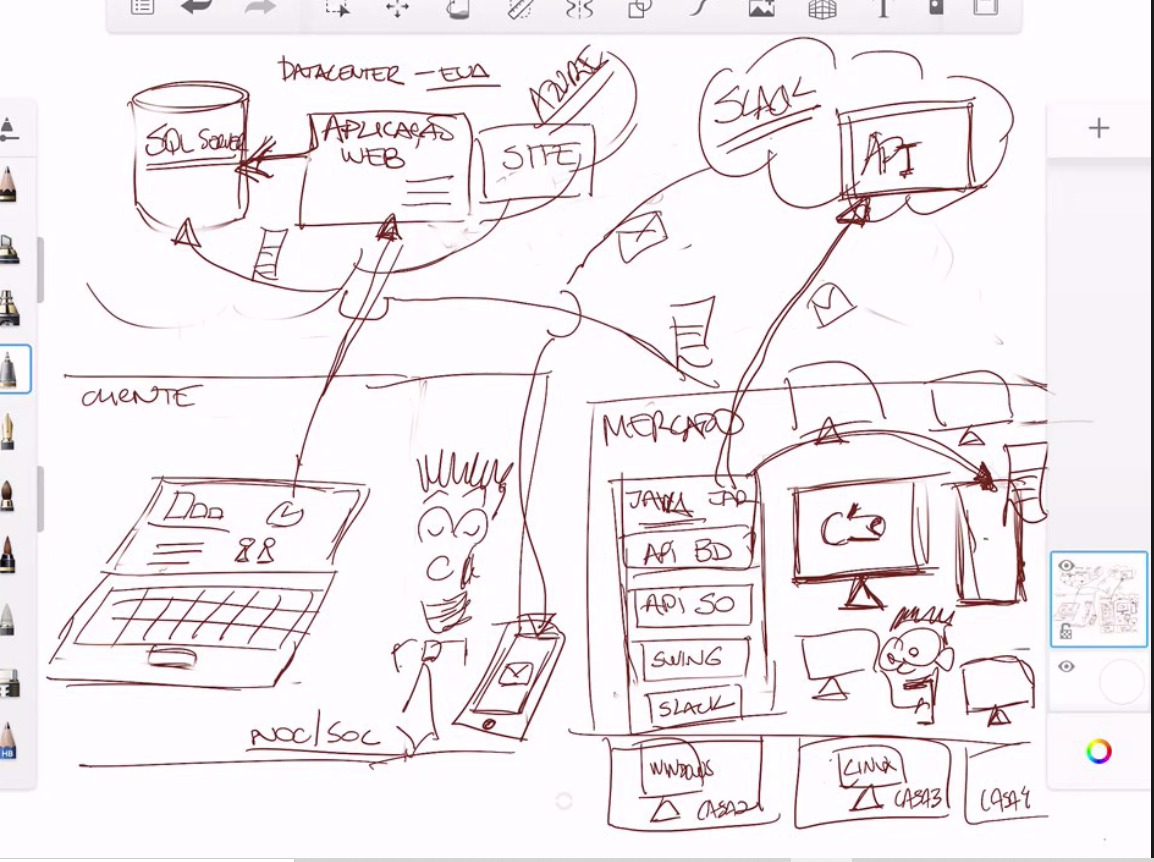 DATACENTER - EUA
AZURE
SLACK
SQL SERVER
APLICAÇÃO
WEB
SITE
API
CLIENTE
MERCADO
JAVA JAR
API BD
API SO
SWING
SLACK
NOC/SOC
WINDOWS
CASA2
LINUX
CASA3
CASA4
HB